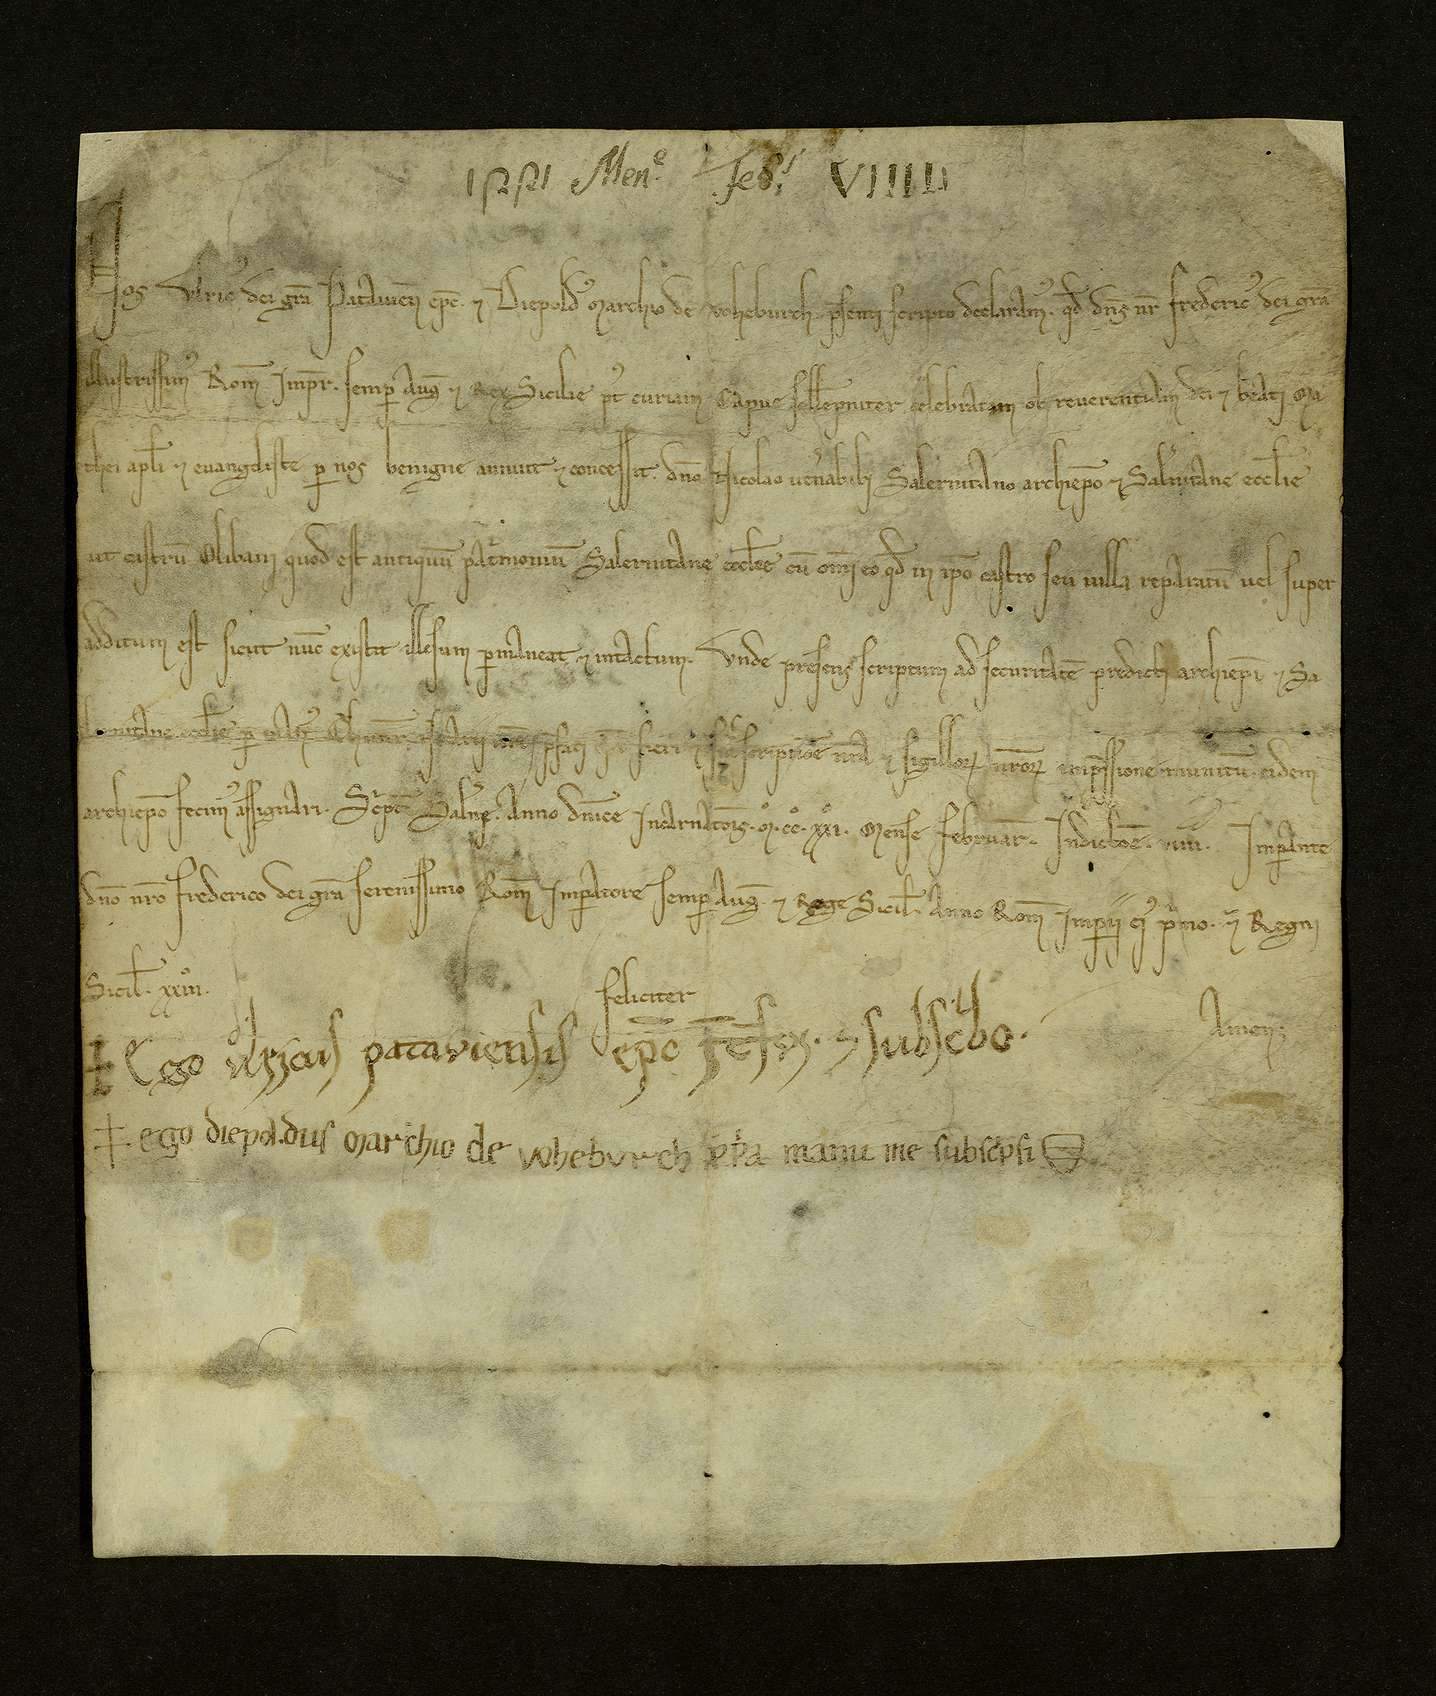 1221 Men.e Feb.i VIIII
Nos Ulric' dei grã Pataviens̄ epc̄. ⁊ Diepold' marchio de voheburch. p̄senti scripto declaram'. qđ dn̄s nr̄ frederic' dei grã
illustrissim' Rom̄ Imp̄r. semp auḡ ⁊ Rex Sicilie p't curiam Capue sollēpniter celebratam ob reverentiam dei ⁊ beati Ma
thei apl̄i ⁊ evangeliste p nos benigne annuit ⁊ concessit. dn̄o Nicolao ven̄abili Salernitano archiep̄o ⁊ Sal̄nitane eccl̄ie
ut castrū Olibani quod est antiquū pat̄monium Salernitane eccl̄ie cū om̄i eo qđ in ip̄o castro seu villa reparatū vel super
additum est sicut nūc existit illesum pmaneat ⁊ intactum. Unde presens scriptum ad securitatē predicti archiep̄i ⁊ Sa
l̄nitane eccl̄ie p fieri ⁊ scriptiōe nr̄a ⁊ sigilloꝝ nr̄oꝝ imp̄ssione munitū. eidem
archiep̄o fecim' assignari. Sc'pt̄ Sal̄ni. Anno dn̄ice Incarnatōis. M̊. cc̊. xxi̊. Mense februar̄. Indictōe. viiii. Imp̄ante
dn̄o nr̄o frederico dei grã serenissimo Rom̄ Imp̄atore semp Auḡ. ⁊ Rege Sicil̄. Anno Rom̄ Impii ej' p̄mo. ⁊ Regni
Sicil̄. xxiii̊. feliciter Amen.
☩ Ego ulricus pataviensis ep̄c ⁊ subsc'bo.
☩. ego diepoldus marchio de voheburch p̄p'a manu me subsc'psi